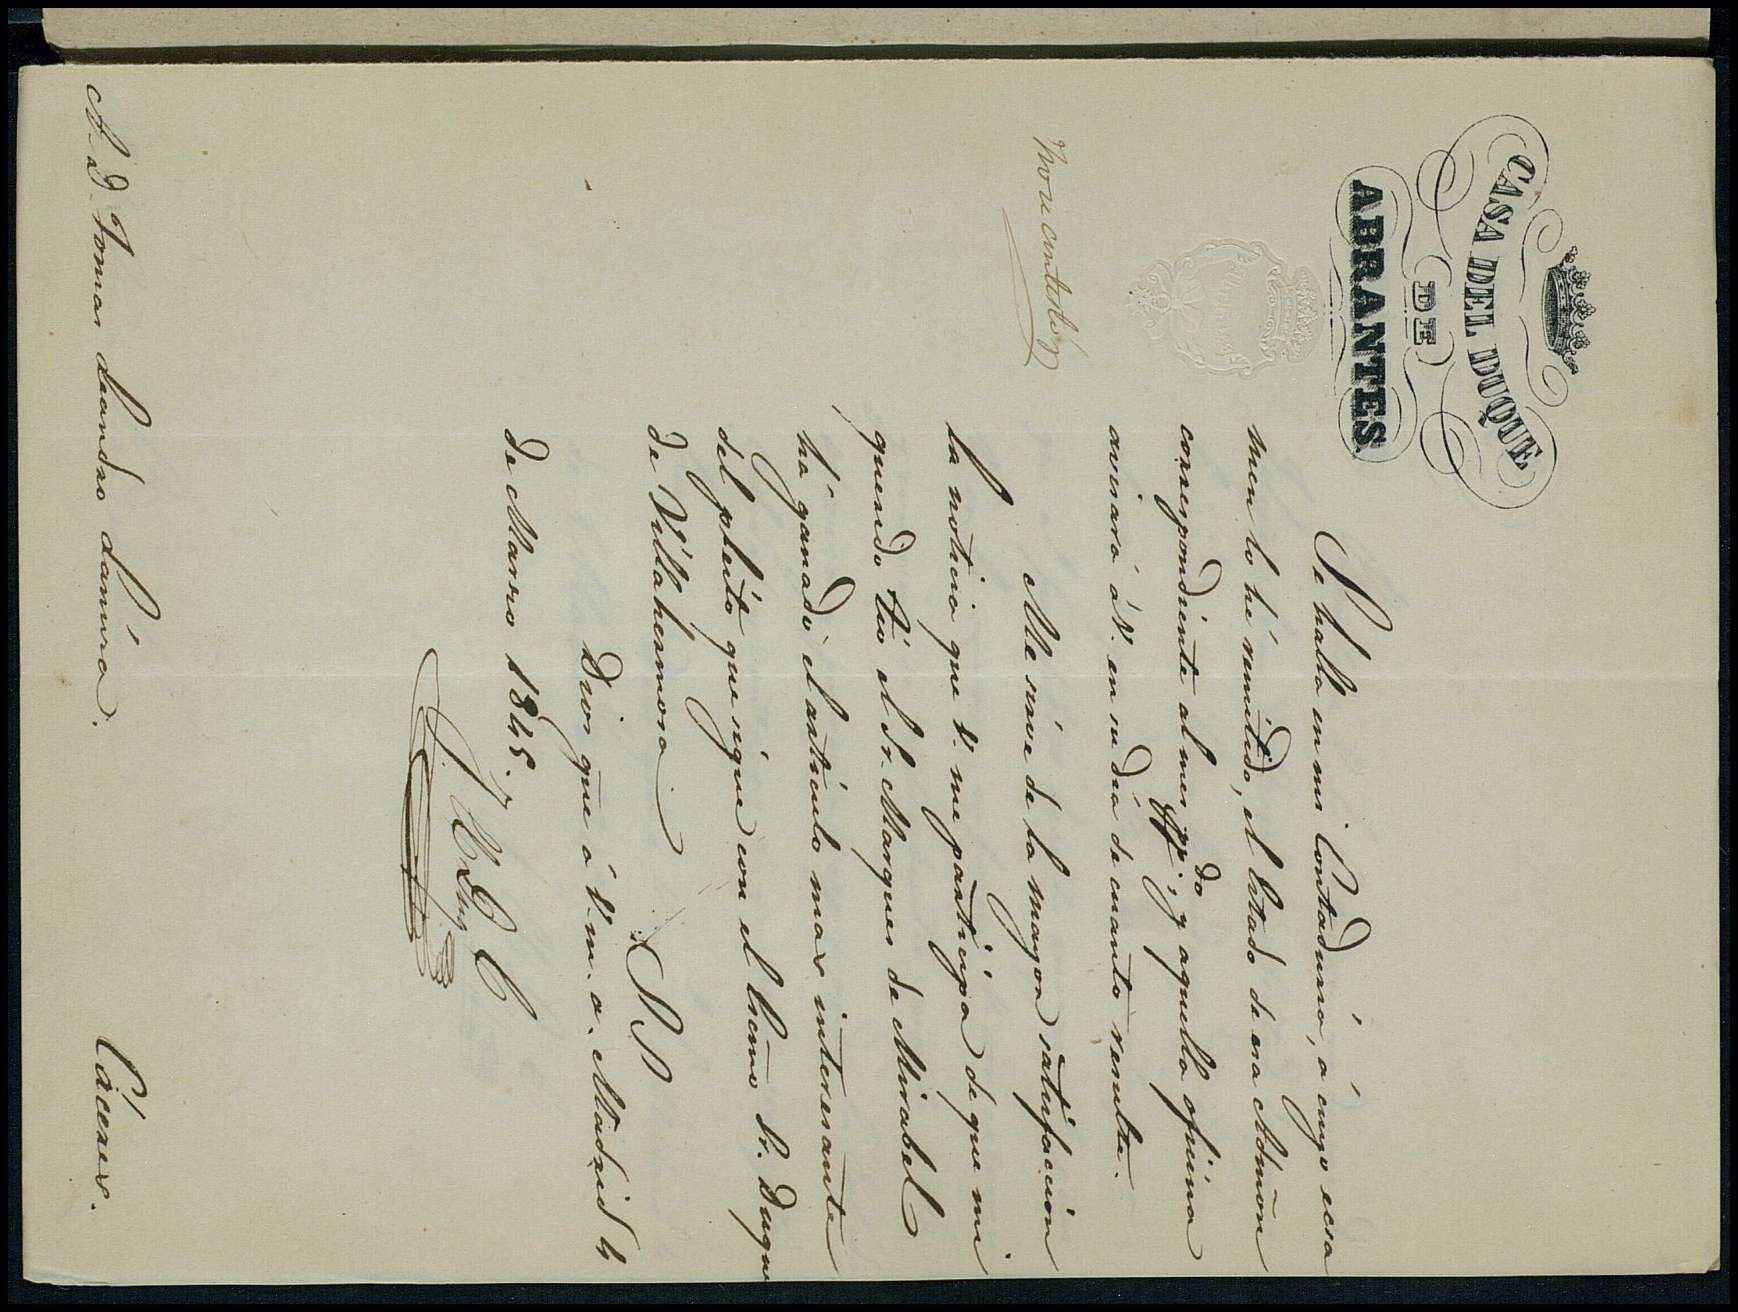 CASA DEL DUQUE
DE
ABRANTES
No se contestó
Se halla en mi Contaduria, á cuyo ecsa
men lo hé remitido, el Estado de esa Admon
correspondiente al mes pp.do y aquella oficina
avisará á V. en su dia de cuanto resulte.
Me sirve de la mayor satisfaccion
la noticia que V. me participa de que mi
querido tio el Sr. Marques de Mirabel
há ganado el articulo mas interesante
del pleito que sigue con el Ecsmo Sr. Duque
de Villahermosa.
Dios gue á V. m. a. Madrid 4
de Marzo 1845.
A D. Tomas Leandro
Cáceres.